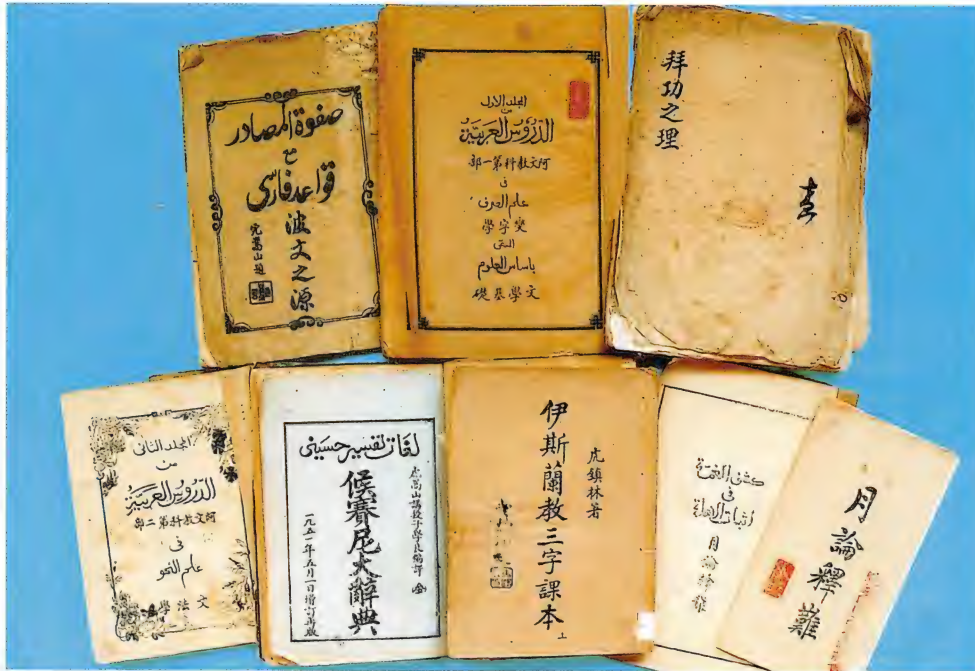 صفوة المصادر
مع
قواعد فارسى
波文之源
虎嵩山題
المجلد الاول
من
الدروس العربية
阿文教科第一部
فى
علم الصرف
變字學
المسمى
باساس العلوم
文學基礎
拜功之理
المجلد الثانى
من
الدروس العربية
阿文教科第二部
فى
علم النحو
文法學
لغات تفسير حسينى
虎嵩山講授
侯賽尼大辭典
一九五一年五月一日增訂再版
虎鎮林著
伊斯蘭教三字課本
上
كشف الغمة
فى
اثبات الاهلة
月論釋難
月論釋難